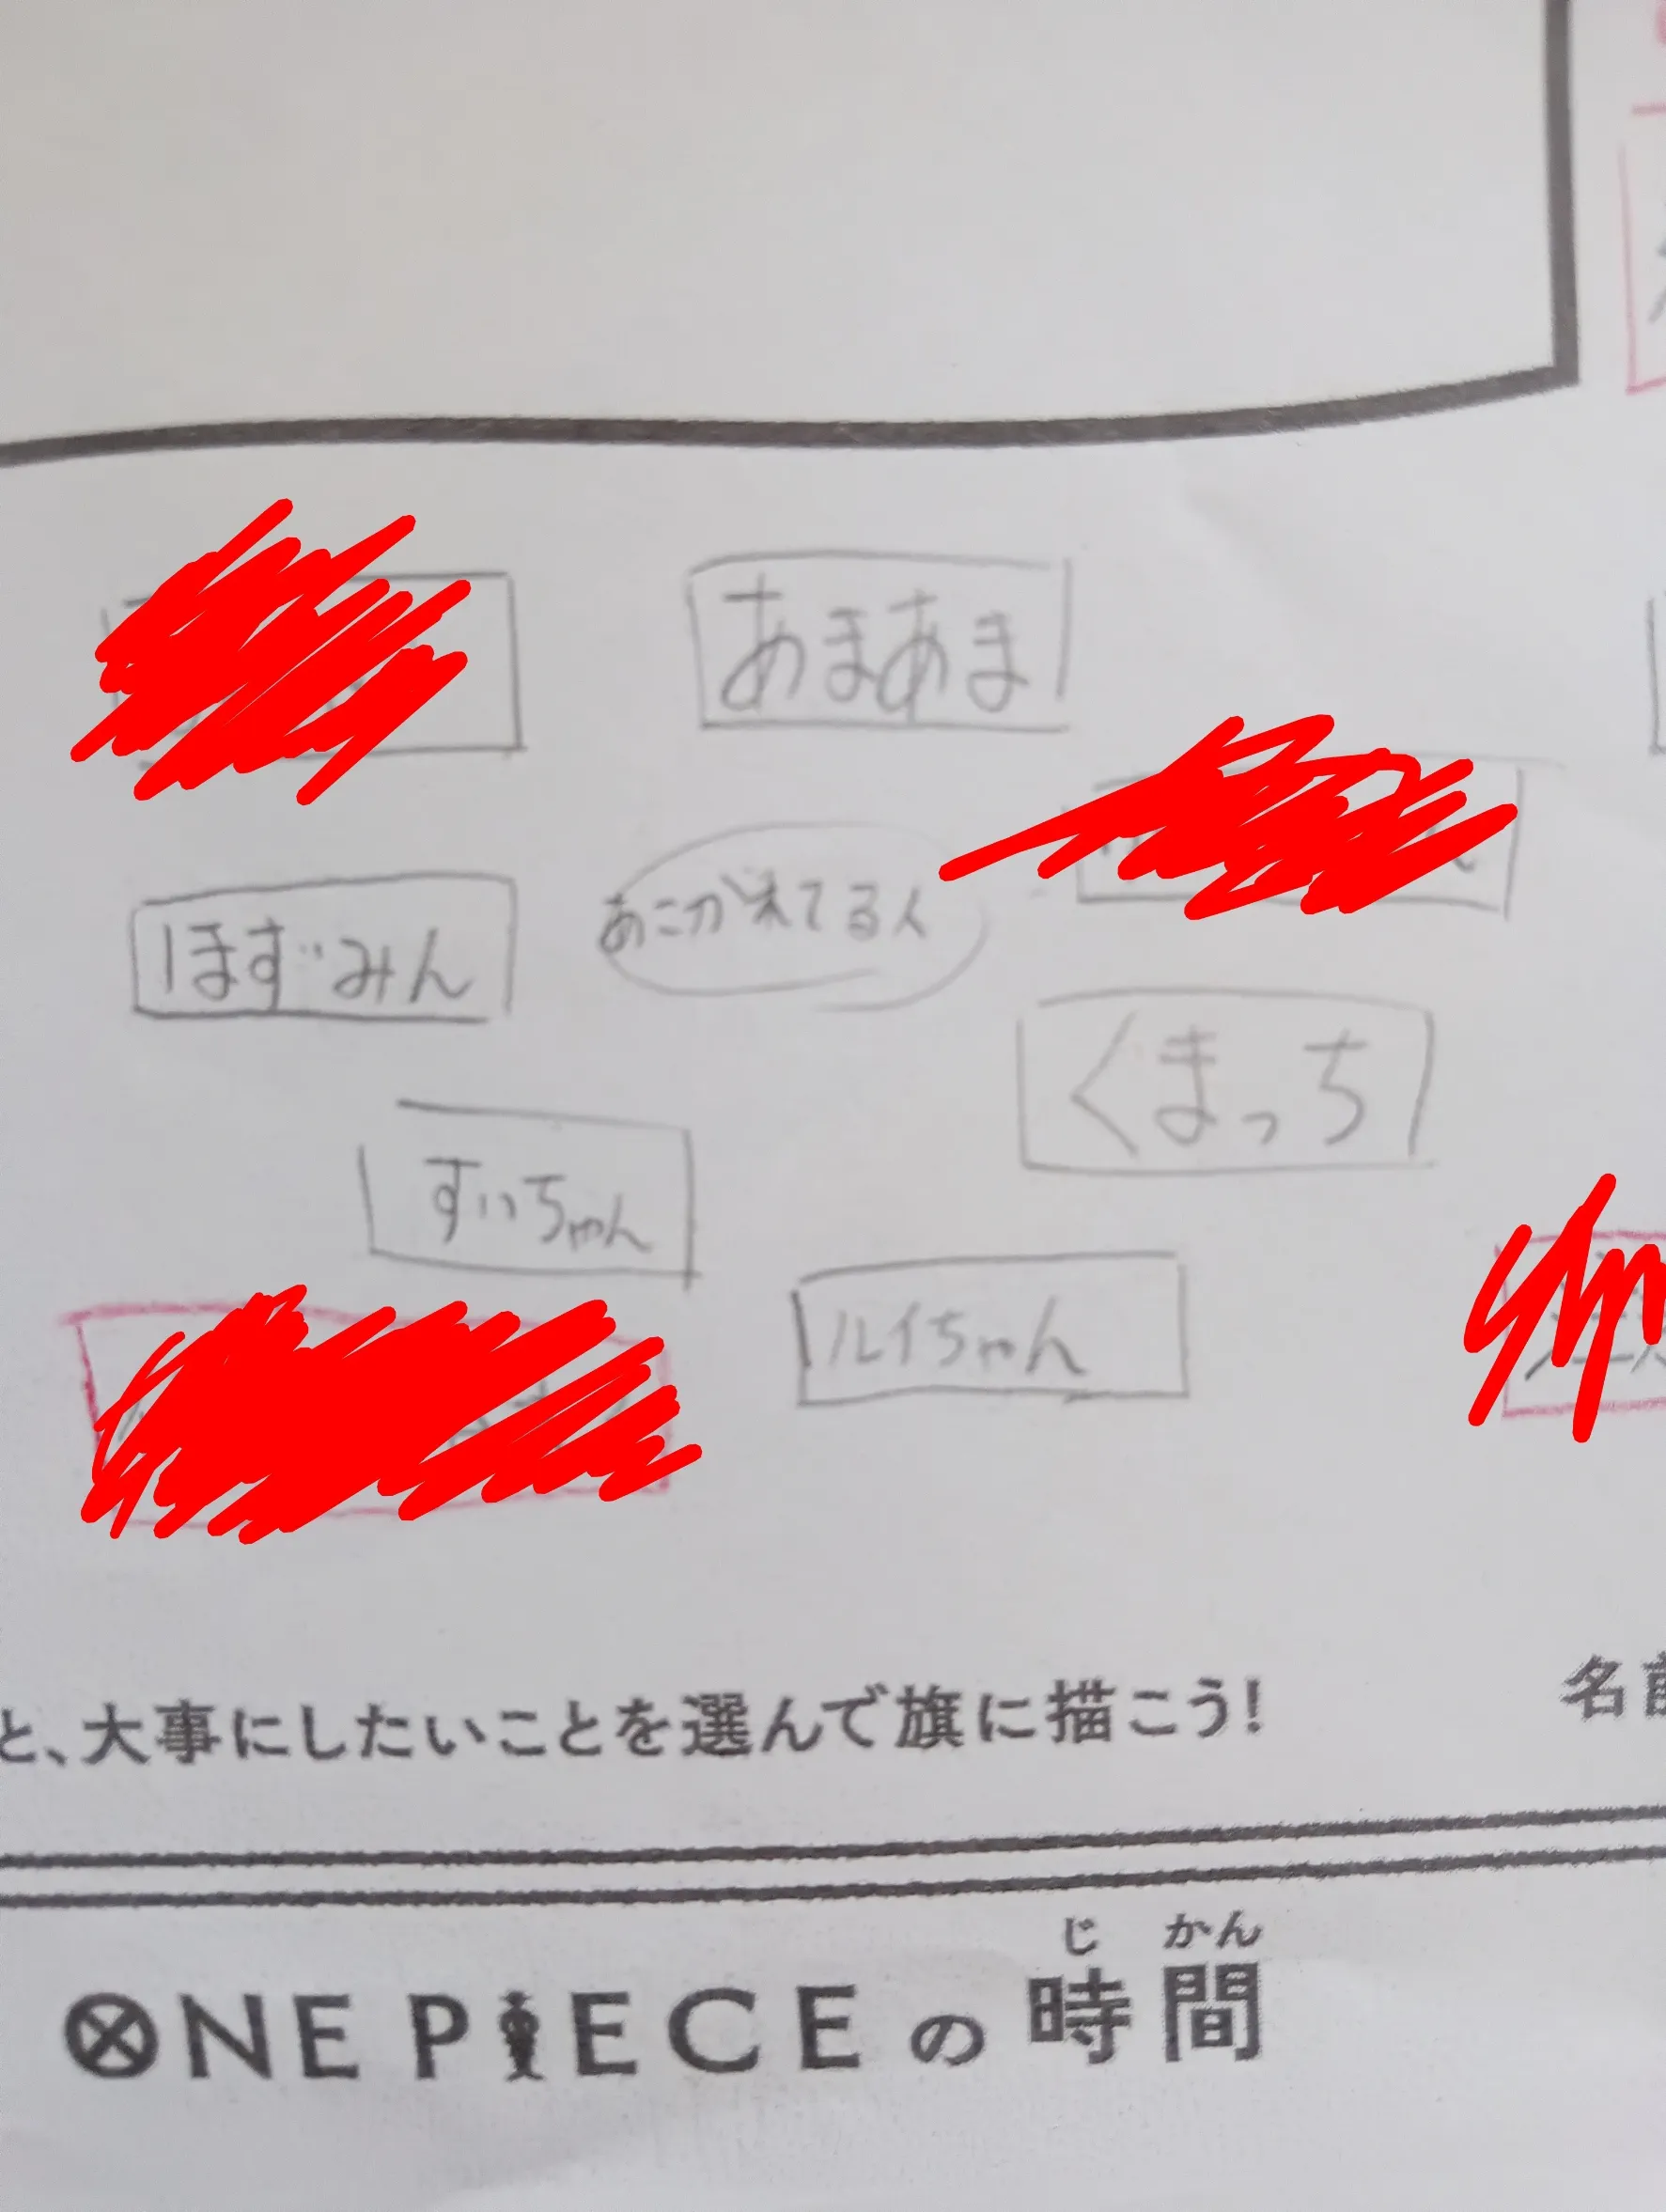 あまあま
ほずみん
あこがれてる人
くまっち
すいちゃん
ルイちゃん
と、大事にしたいことを選んで旗に描こう!
名前
じ かん
ONE PIECEの時間